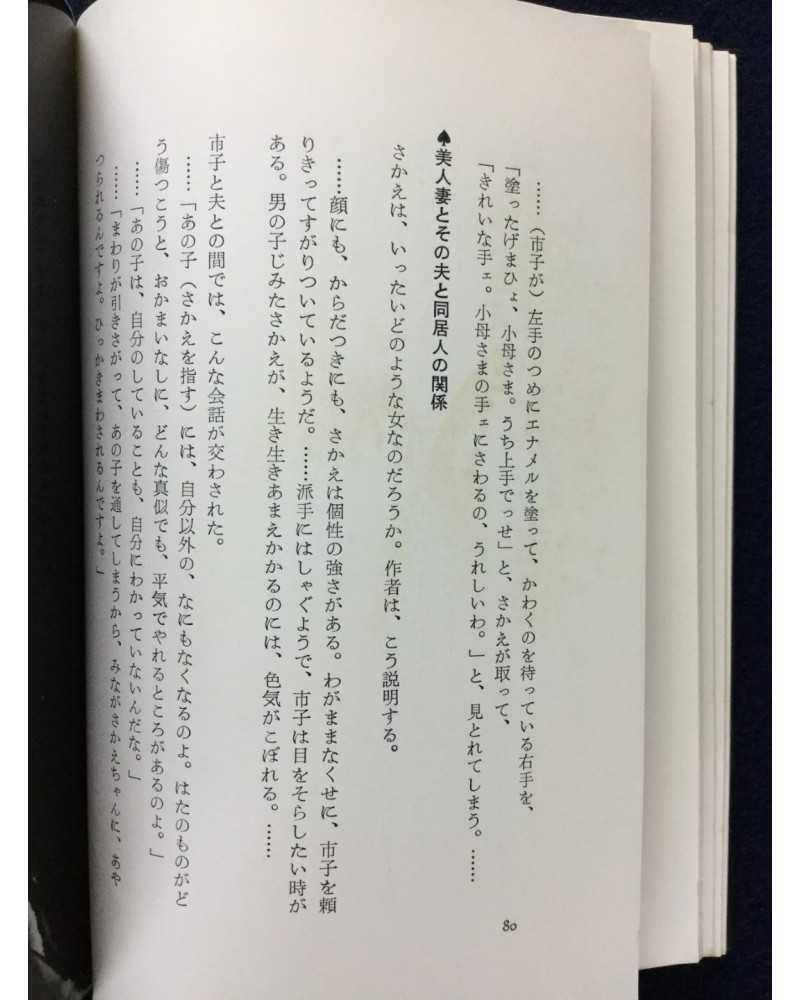 ……（市子が）左手のつめにエナメルを塗って、かわくのを待っている右手を、
「塗ったげまひょ、小母さま。うち上手でっせ」と、さかえが取って、
「きれいな手ェ。小母さまの手ェにさわるの、うれしいわ。」と、見とれてしまう。……
♠美人妻とその夫と同居人の関係
さかえは、いったいどのような女なのだろうか。作者は、こう説明する。
……顔にも、からだつきにも、さかえは個性の強さがある。わがままなくせに、市子を頼
りきってすがりついているようだ。……派手にはしゃぐようで、市子は目をそらしたい時が
ある。男の子じみたさかえが、生き生きあまえかかるのには、色気がこぼれる。……
市子と夫との間では、こんな会話が交わされた。
……「あの子（さかえを指す）には、自分以外の、なにもなくなるのよ。はたのものがど
う傷つこうと、おかまいなしに、どんな真似でも、平気でやれるところがあるのよ。」
……「あの子は、自分のしていることも、自分にわかっていないんだな。」
……「まわりが引きさがって、あの子を通してしまうから、みながさかえちゃんに、あや
つられるんですよ。ひっかきまわされるんですよ。」
80